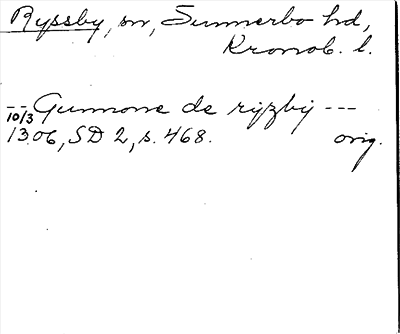 Ryssby, sn, Sunnerbo hd,
Kronob. l.
-- Gunnone de ryzby ---
10/3 1306, SD 2, s. 468. orig.